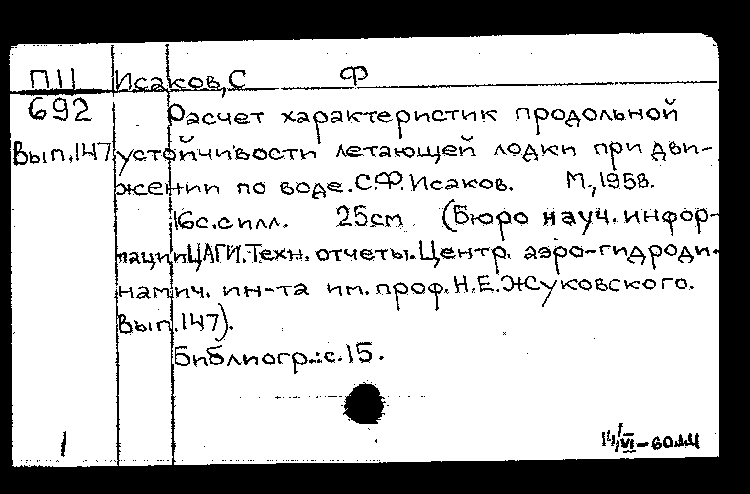 П11 Исаков, С Ф
692 Расчет характеристик продольной
Вып.147 устойчивости летающей лодки при дви-
жении по воде. С.Ф. Исаков. М., 1958.
16с. с илл. 25см (Бюро науч. инфор-
мации ЦАГИ. Техн. отчеты. Центр. аэро-гидроди-
намич. ин-та им. проф. Н.Е. Жуковского.
Вып.147).
Библиогр.: с.15.
1 14/VI-60